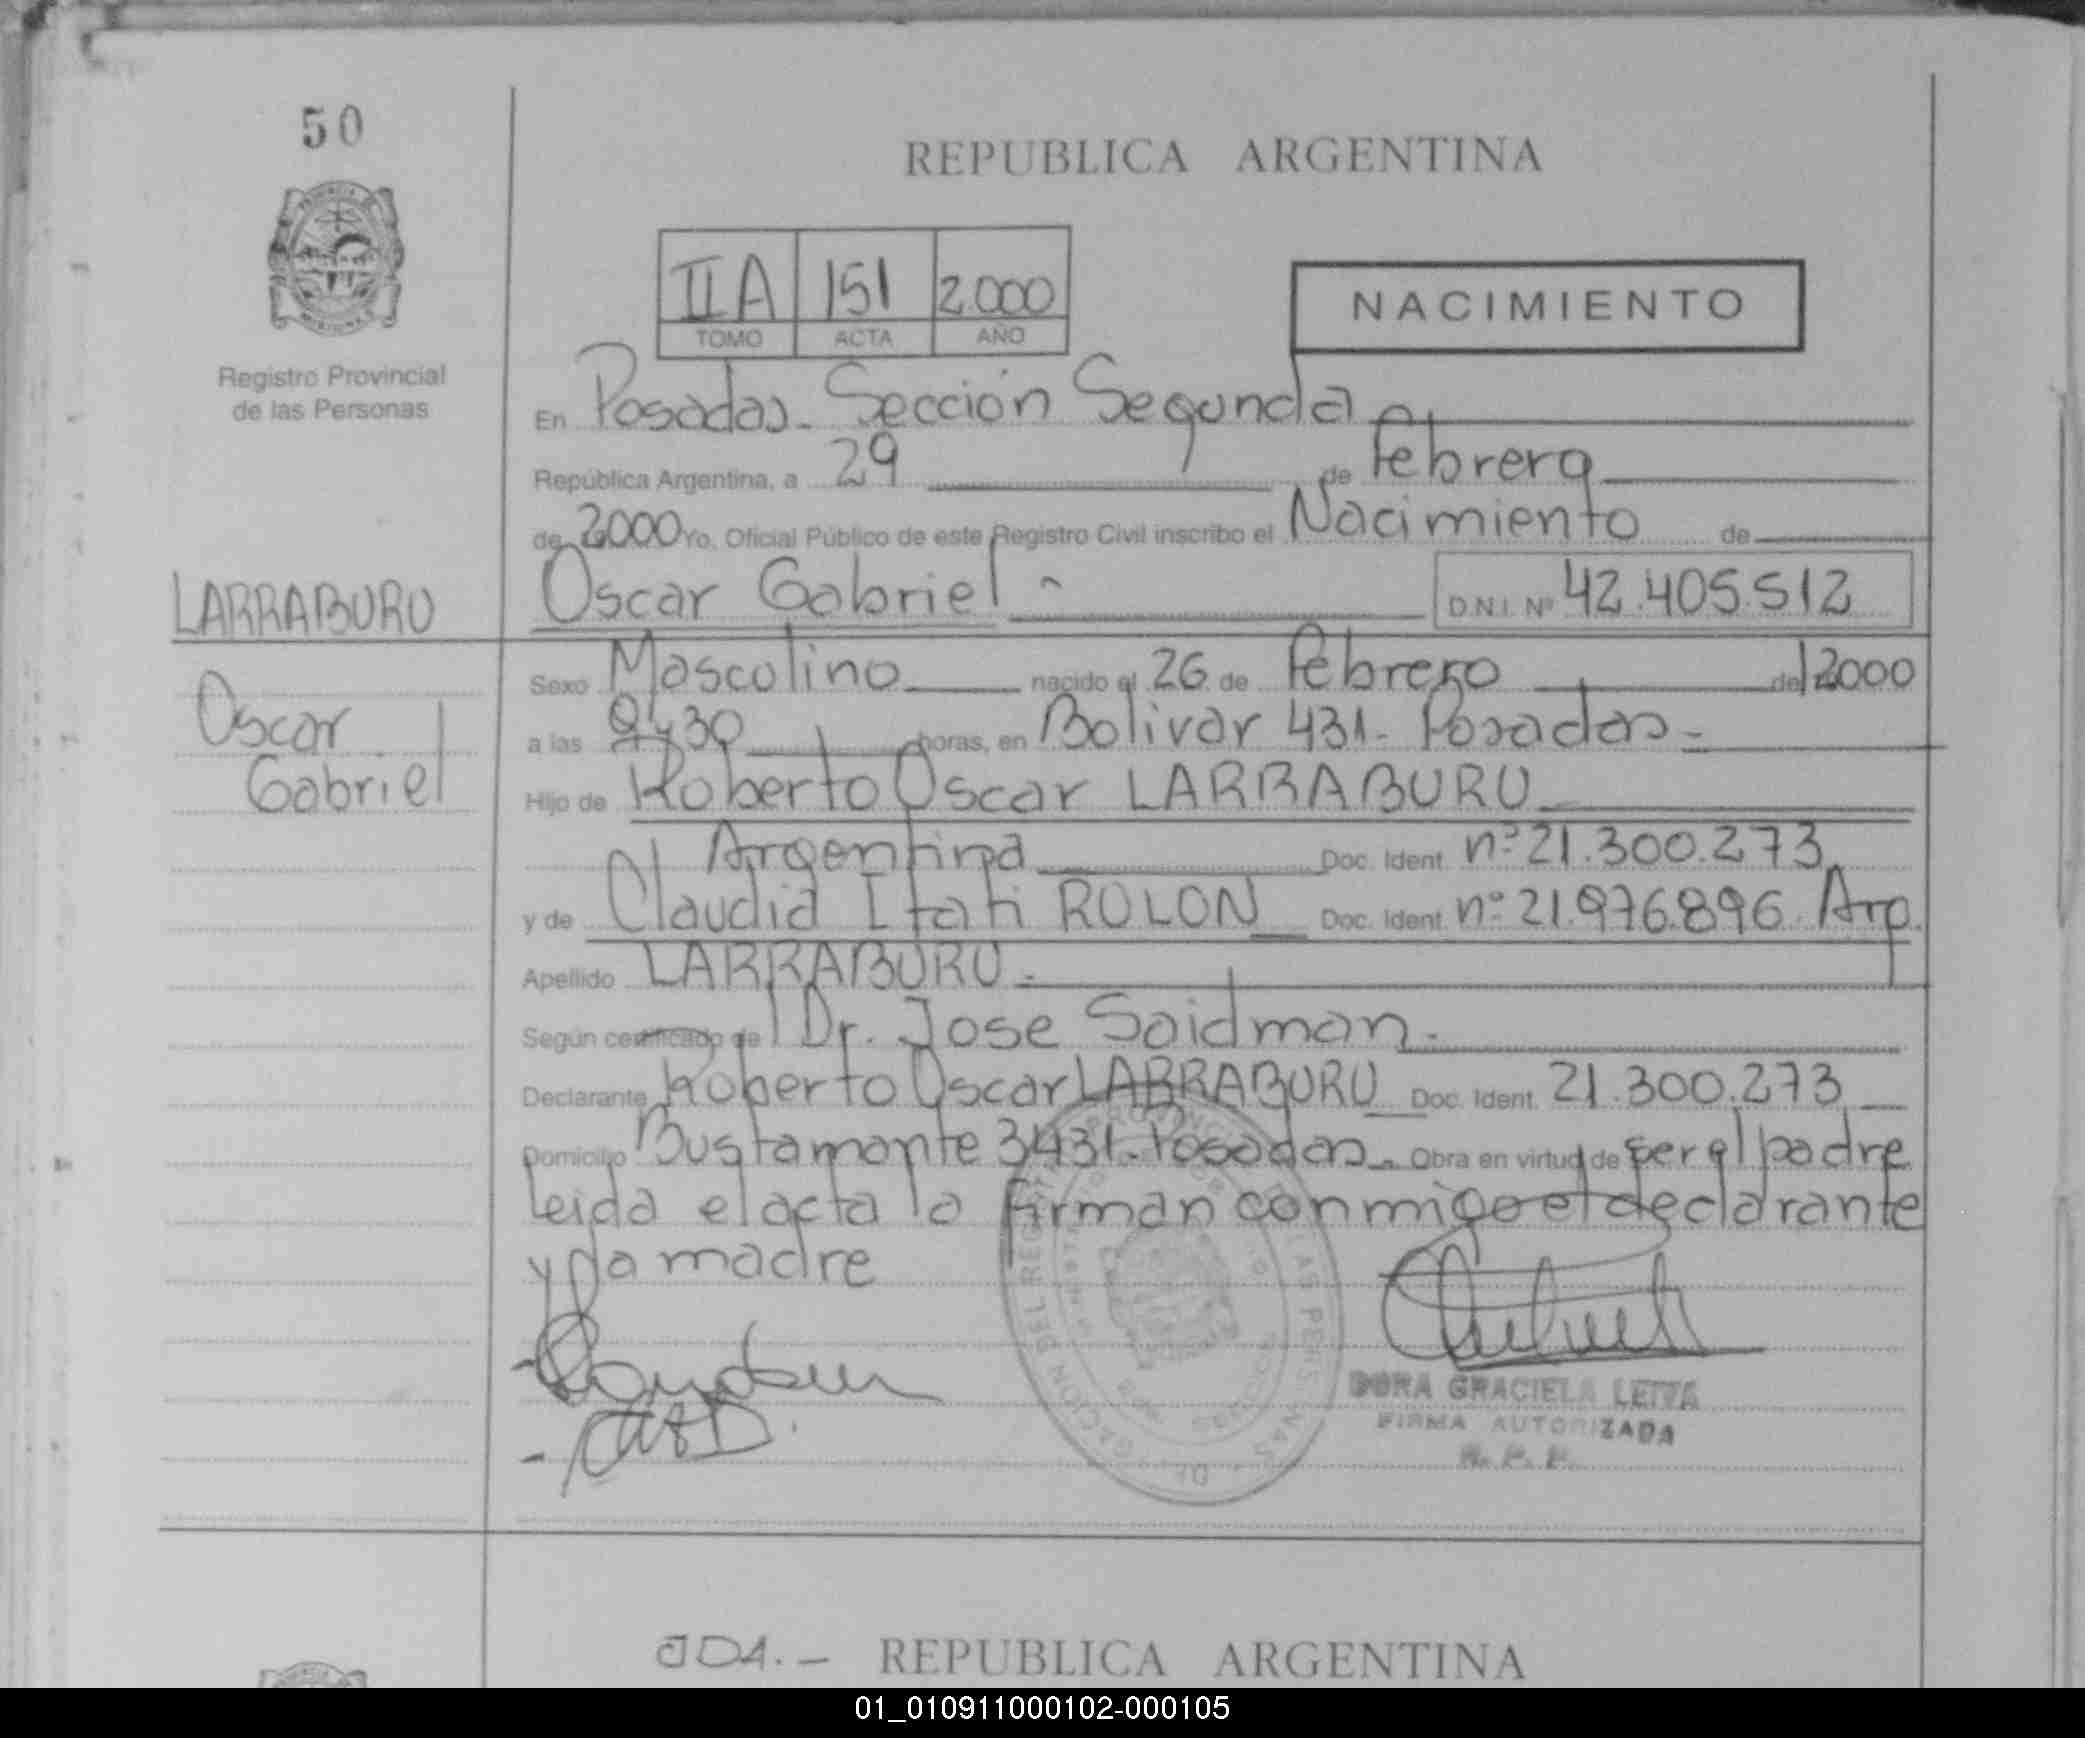 50
REPUBLICA ARGENTINA
IIA 151 2.000
TOMO ACTA AÑO
NACIMIENTO
Registro Provincial
de las Personas
En Posadas. Sección Segunda
República Argentina, a 29 de Febrero
de 2000 Yo, Oficial Público de este Registro Civil inscribo el Nacimiento de
LARRABURU
Oscar Gabriel
Oscar Gabriel D.N.I. Nº 42.405.512
Sexo Masculino nacido el 26 de Febrero de 2000
a las 9y30 horas, en Bolivar 431. Posadas
Hijo de Roberto Oscar LARRABURU
Argentina Doc. Ident. nº 21.300.273
y de Claudia Itati ROLON Doc. Ident. nº 21.976.896. Arg.
Apellido LARRABURU.
Según certificado de Dr. Jose Saidman.
Declarante Roberto Oscar LARRABURU Doc. Ident. 21.300.273
Domicilio Bustamante 3431. Posadas. Obra en virtud de ser el padre
leida el acta la firman conmigo el declarante
y la madre
DORA GRACIELA LEIVA
FIRMA AUTORIZADA
R. P. P.
JDA.- REPUBLICA ARGENTINA
01_010911000102-000105